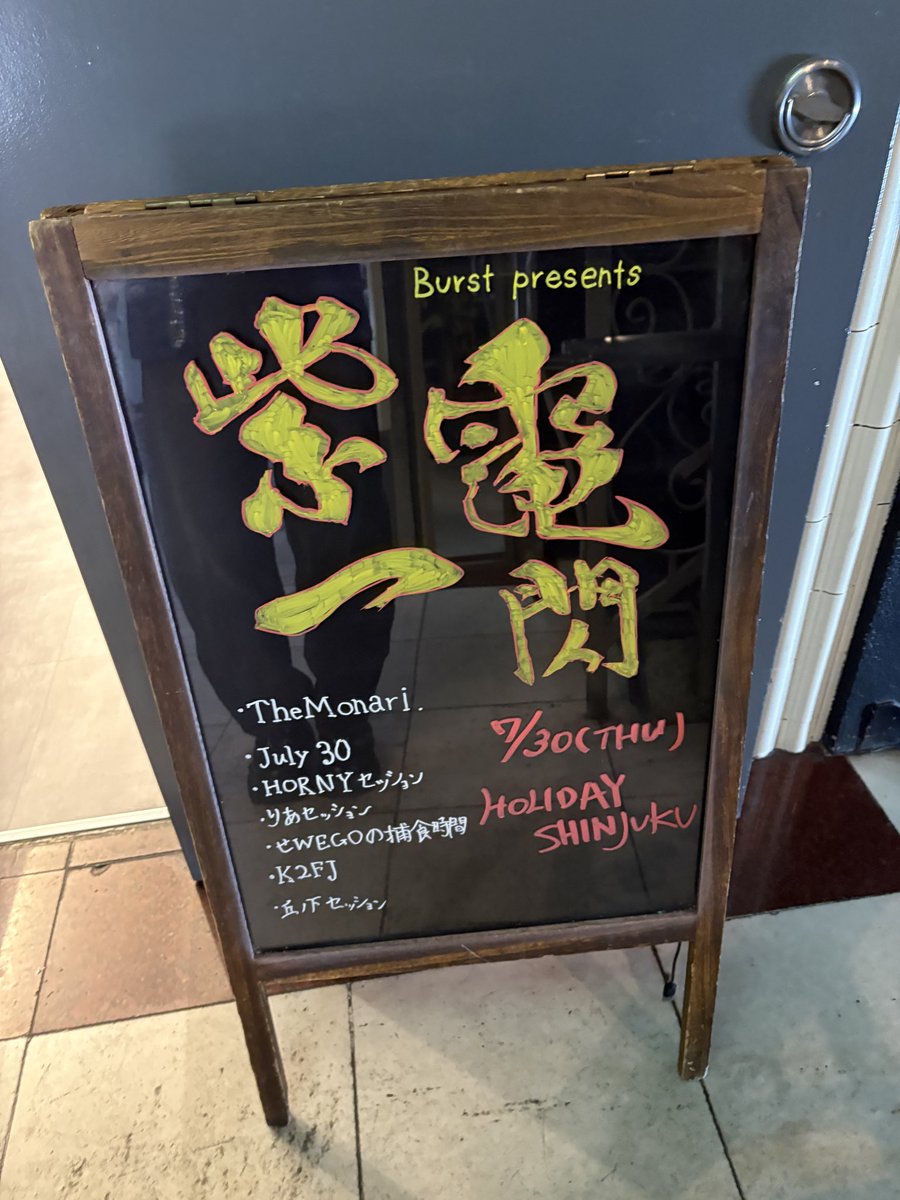 Burst presents
紫電
一閃
・TheMonari.
・July 30
・HORNYセッション
・りあセッション
・せWEGOの捕食時間
・K2FJ
・丘ノ下セッション
7/30(THU)
HOLIDAY
SHINJUKU